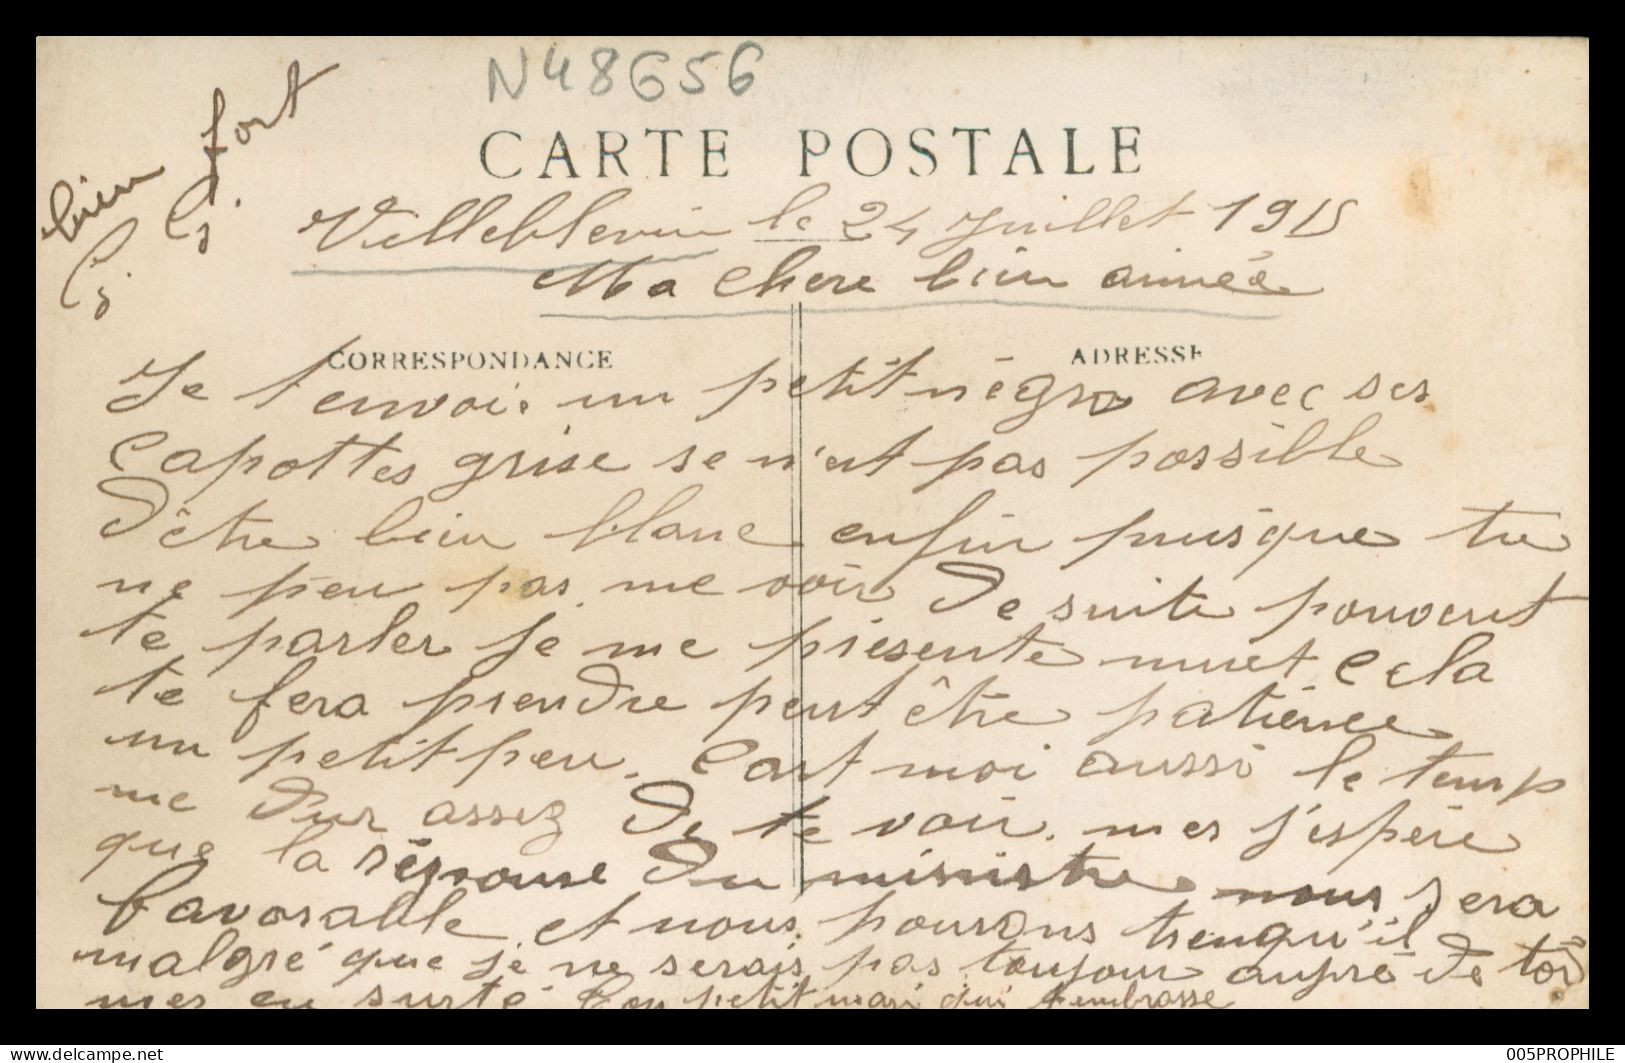 N48656
CARTE POSTALE
Villeblevin le 24 Juillet 1915
Ma Chere bien aimée
CORRESPONDANCE
ADRESSE
Je t envoi un petit négro avec ses
Capottes grise se n'est pas possible
d'être bien blanc enfin puisque tu
ne peu pas me voir de suite pouvent
te parler je me présente muet Cela
te fera prendre peut être patience
un petit peu. Cart moi aussi le temp
me dur assez de te voir. mes j'espère
que la réponse du ministre nous sera
favorable et nous pourons trenqu'il
malgré que je ne serais pas toujour aupré de toi
mes en surté Ton petit mari qui t'embrasse
bien fort
G. G.
delcampe.net
005PROPHILE